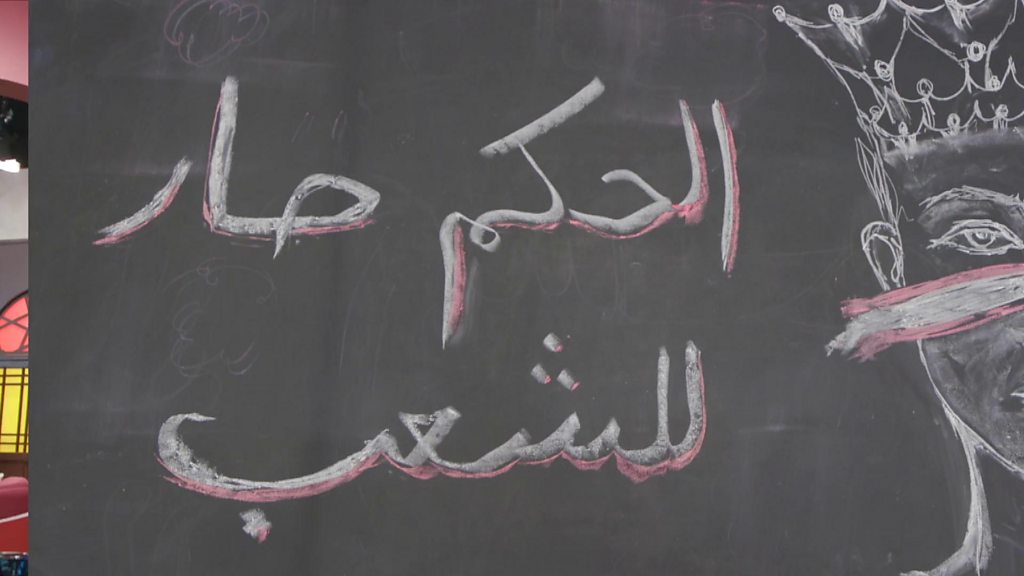 الحكم صار
للشعب